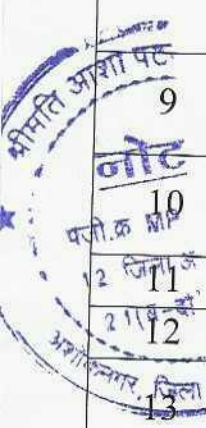 श्रीमति आशा पट
9
नोट
10
पजी.क्र MP
12 जिला अ
11
211
12
अशोकनगर, जिला
13